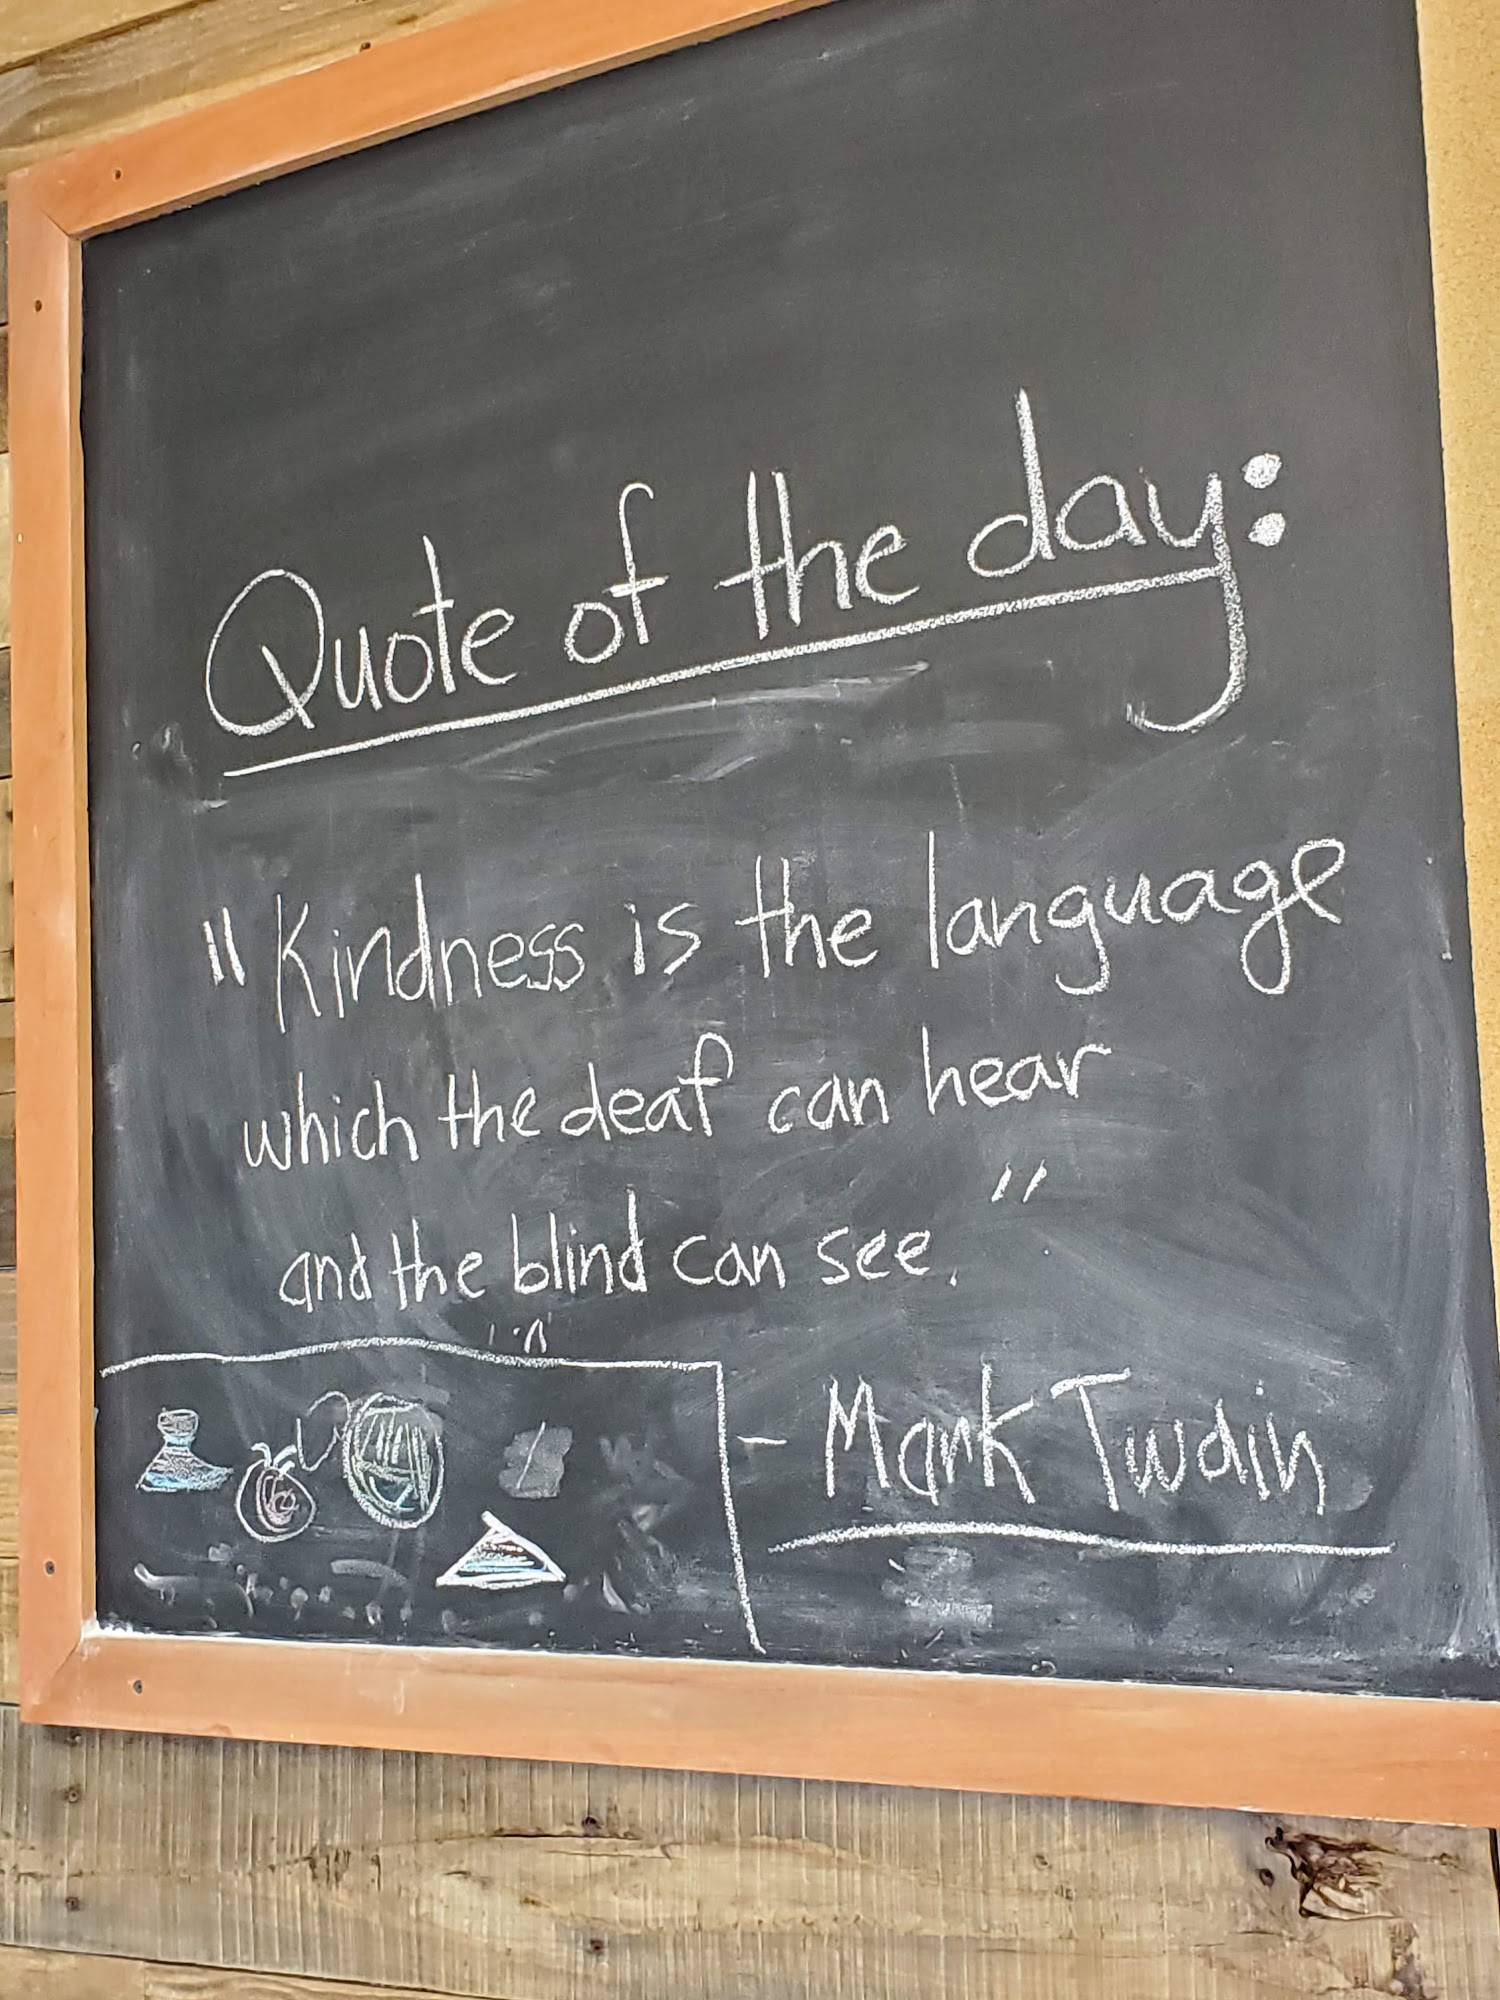 Quote of the day:
"Kindness is the language
which the deaf can hear
and the blind can see."
- Mark Twain